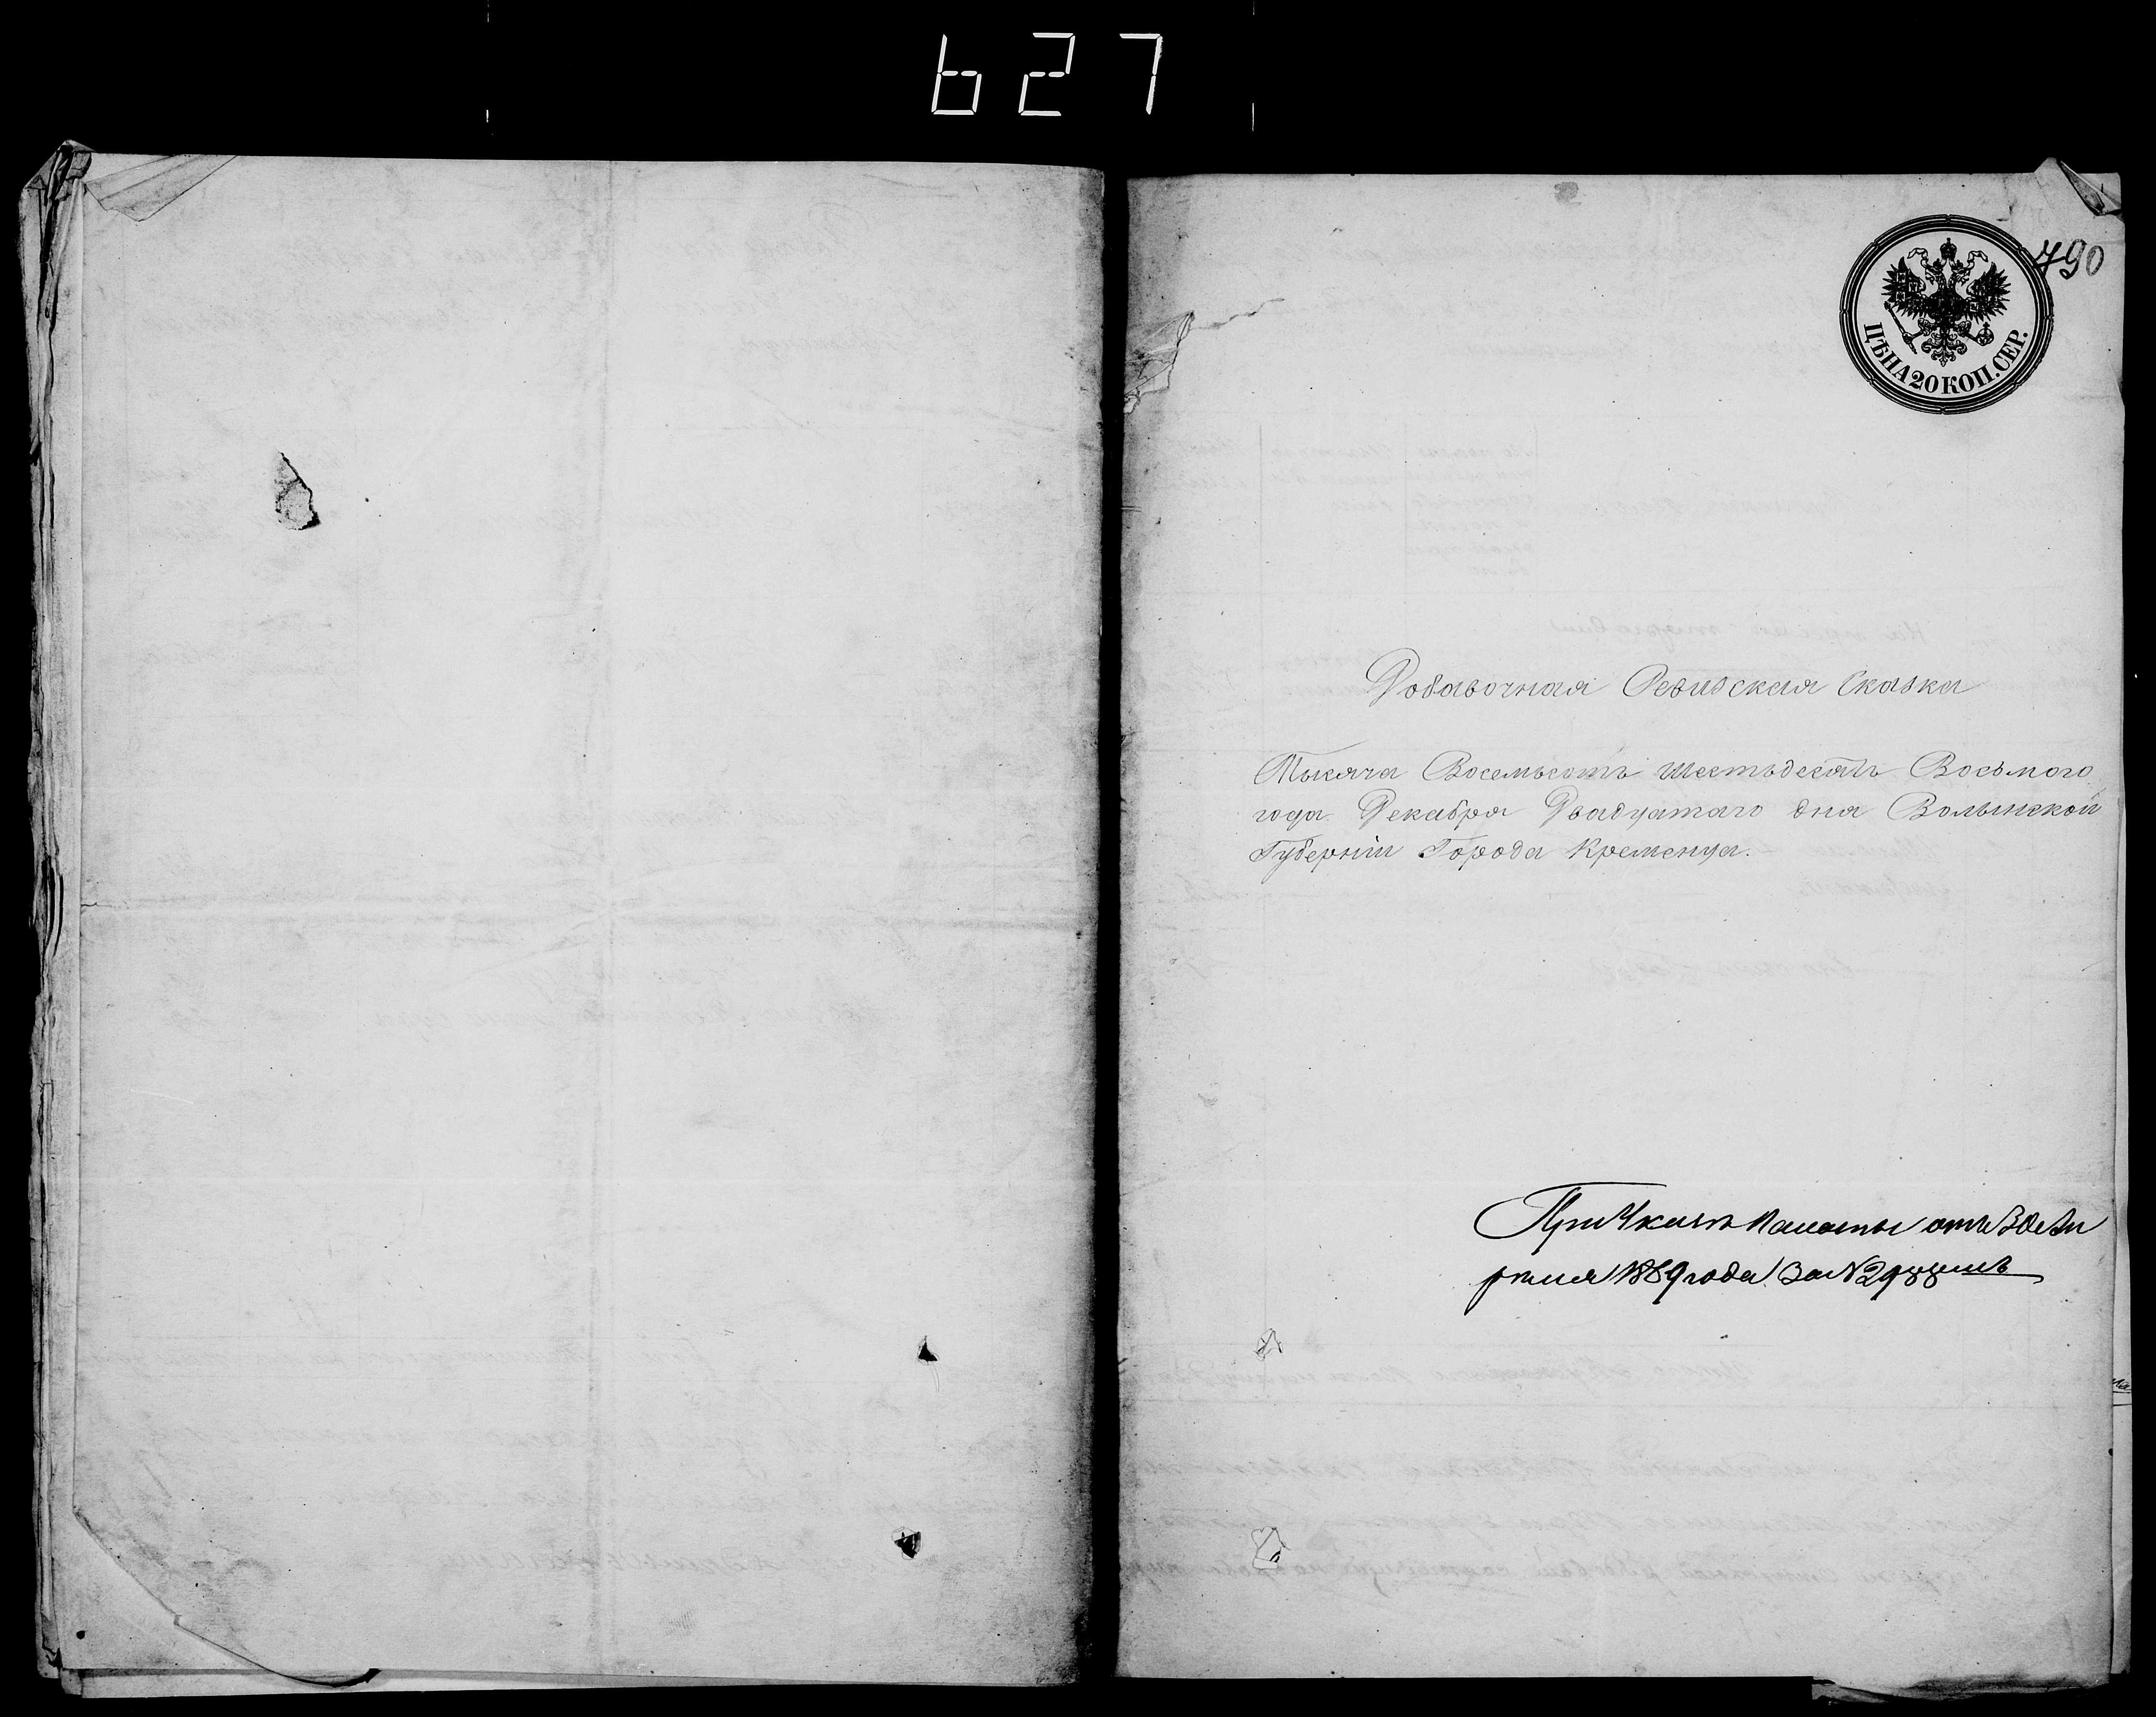 627
790
ЦѢНА 20 КОП. СЕР.
Добавочная Ревизская Сказка
Тысяча Восемьсотъ шестьдесятъ Восьмого
года Декабря Двадцатаго дня Волынской
Губерніи Города Кременца.
При Указѣ Палаты отъ 30 Ап
рѣля 1869 года За №